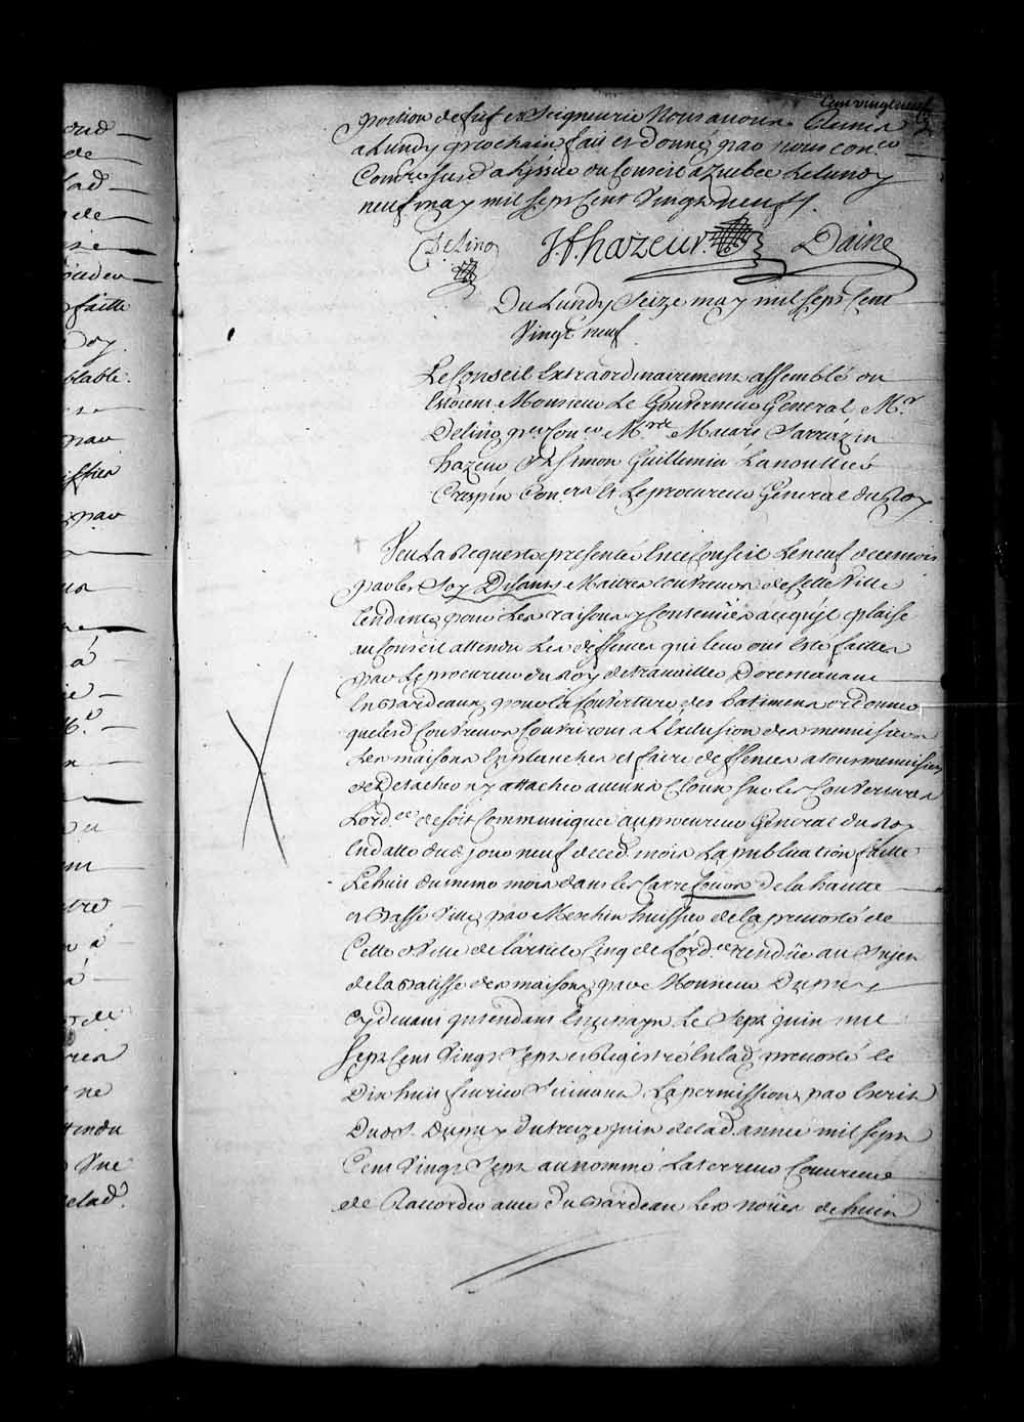 Cent vingt neuf
portion de fief et Seigneurie Nous avons Remis
a Lundy prochain, fait et donné par nous con.er
Comre susd. a l'yssue du Conseil a Quebec Le lundy
neuf may mil sept Cent Vingt neuf /.
Delino
J. f. hazeur
Daine
Du Lundy Seize may mil sept Cent
Vingt neuf
Le Conseil Extraordinairement assemblé ou
Estoient Monsieur Le Gouverneur General, M.r
Delino per Con.er M.rs Macart Sarrazin
hazeur St Simon Guillimin Lanoullier
Crespin Con.ers Et Le procureur General du Roy
Veu La Requeste presentée En ce Conseil Le neuf de ce mois
par les Soy Disants Maitres couvreurs de Cette Ville
Tendante pour Les raisons y Contenües a ce qu'il plaise
au Conseil attendu Les deffences qui leur ont Esté faittes
par Le procureur du Roy de travailler Doresnavant
En Bardeaux pour la Couverture des batimens ordonner
que lesd. Couvreurs Couvriront a L'Exclusion des menuisiers
Les maisons En planches et faire deffences a tous menuisiers
de Detacher n'y attacher aucuns Cloux sur les Couvertures
L'ord.ce de soit Communiquée au procureur General du Roy
En datte dud. jour neuf de ced. mois La publication faitte
Le huit du mesme mois dans les Carrefours de la hautte
et Basse Ville par Meschin huissier de la prevosté de
Cette Ville de l'article Cinq de L'ord.ce rendüe au Sujet
de la Batisse des maisons par Monsieur Dupuy
Cy devant jntendant En ce pays Le Sept juin mil
Sept Cent Vingt Sept et Registré En lad. prevosté le
Dix huit fevrier Suivant La permission par Ecrit
Dud. S. Dupuy du treize juin de lad. année mil sept
Cent Vingt Sept au nommé Laterreur Couvreur
de Raccorder avec du Bardeau Les noües de huin